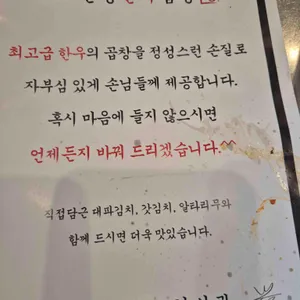 최고급 한우의 곱창을 정성스런 손질로
자부심 있게 손님들께 제공합니다.
혹시 마음에 들지 않으시면
언제든지 바꿔 드리겠습니다.^^
직접담근 대파김치, 갓김치, 알타리무와
함께 드시면 더욱 맛있습니다.